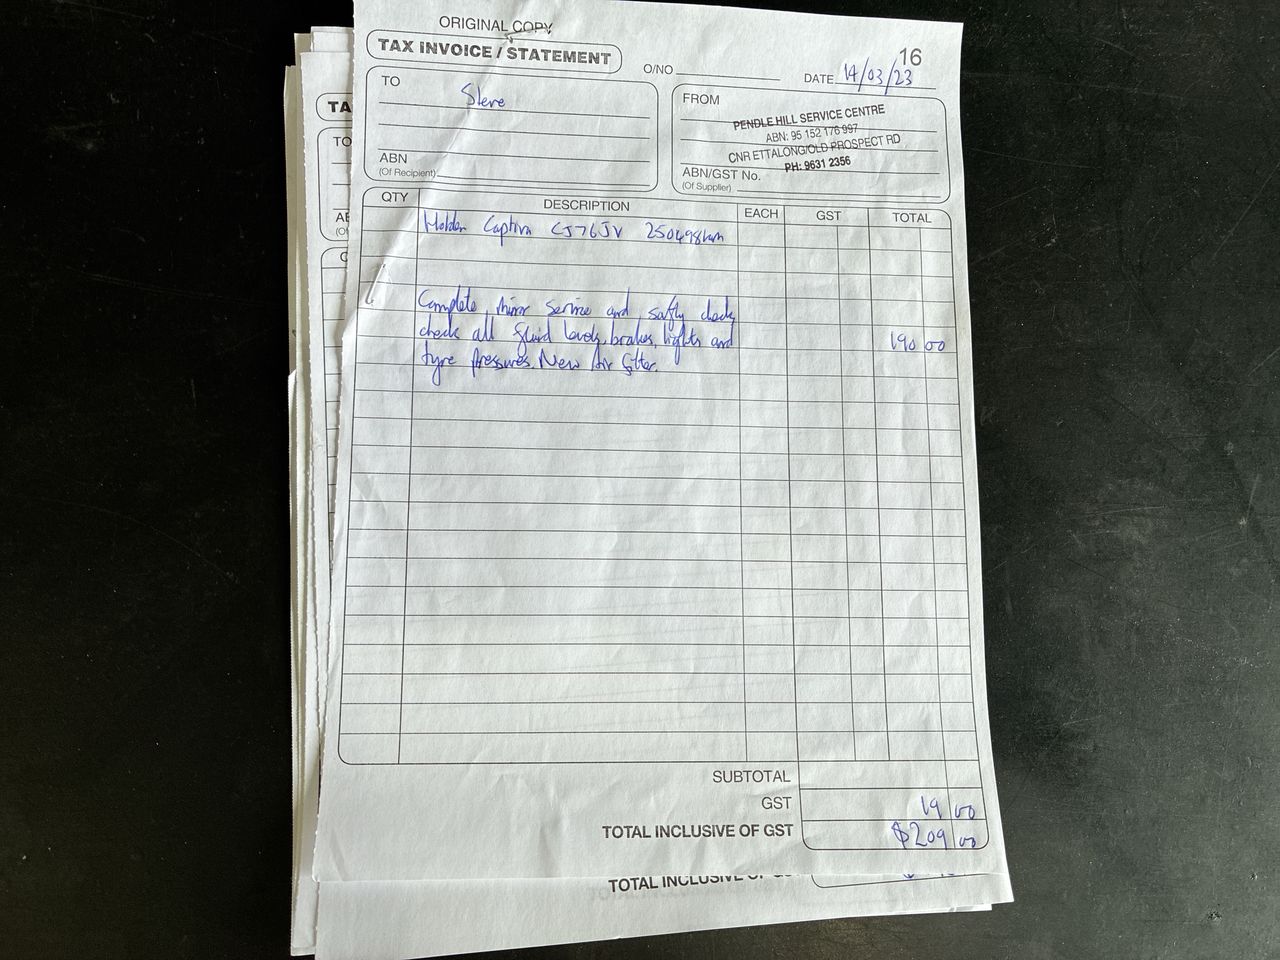 ORIGINAL COPY
TAX INVOICE / STATEMENT
16
O/NO
DATE 14/03/23
TO
Steve
ABN
(Of Recipient)
FROM
PENDLE HILL SERVICE CENTRE
ABN: 95 152 176 997
CNR ETTALONG/OLD PROSPECT RD
PH: 9631 2356
ABN/GST No.
(Of Supplier)
QTY DESCRIPTION EACH GST TOTAL
Holden Captiva CJ76JV 250498km
Complete minor service and safty check,
check all fluid levels, brakes, lights and 190 00
tyre pressures. New Air filter.
SUBTOTAL
GST 19 00
TOTAL INCLUSIVE OF GST $209 00
TA
TO
TOTAL INCLUSIVE OF GS